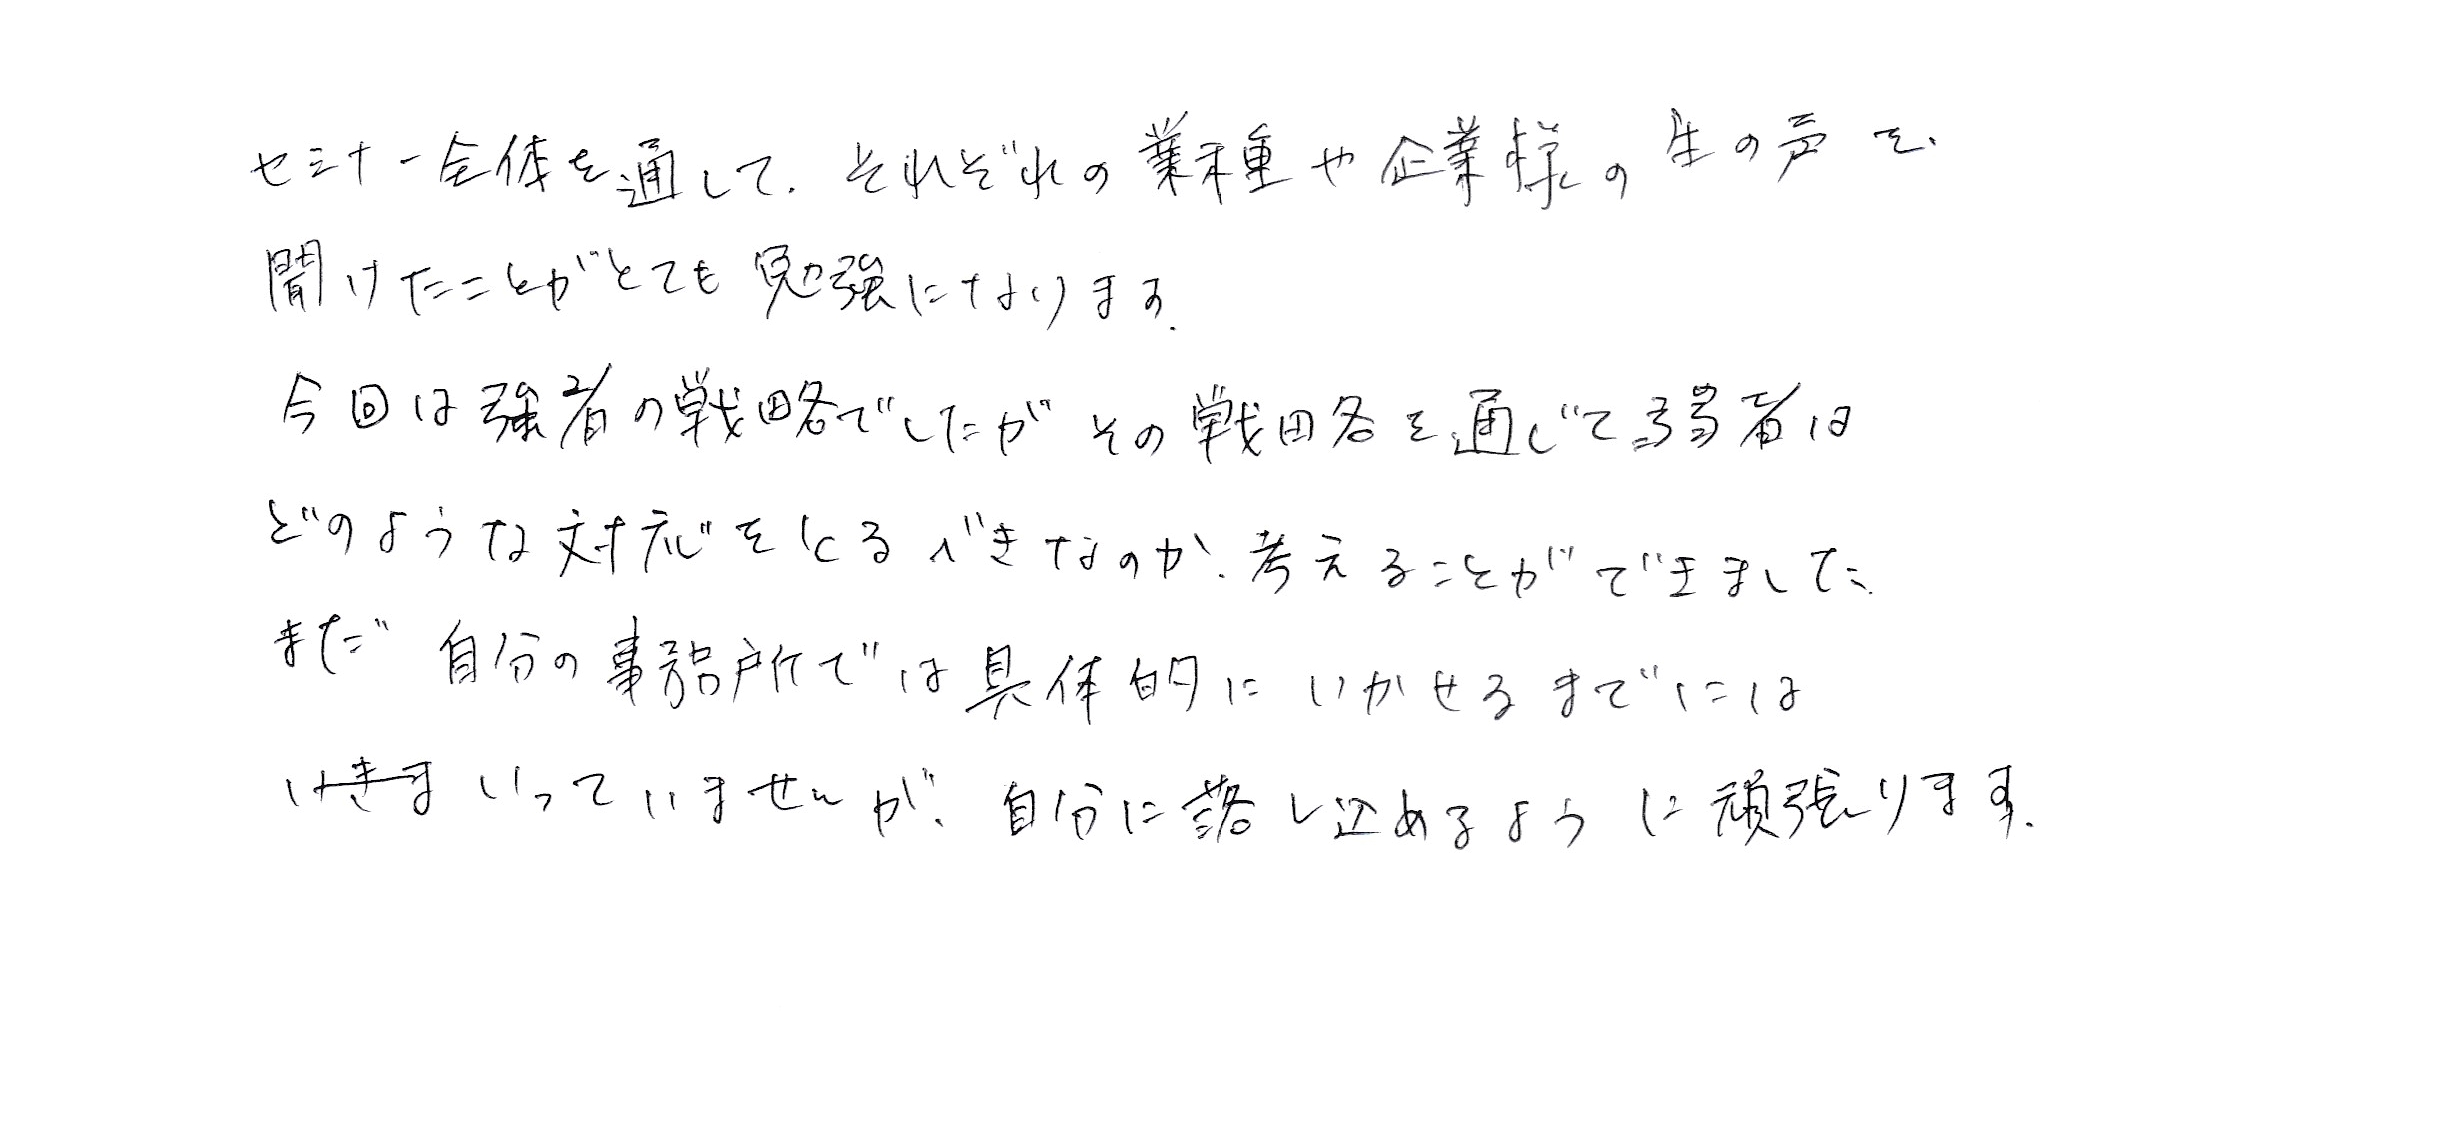 セミナー全体を通して、それぞれの業種や企業様の生の声を、
聞けたことがとても勉強になります。
今回は強者の戦略でしたがその戦略を通じて弱者は
どのような対応をとるべきなのか、考えることができました。
まだ自分の事務所では具体的にいかせるまでには
いきまいっていませんが、自分に落し込めるように頑張ります。